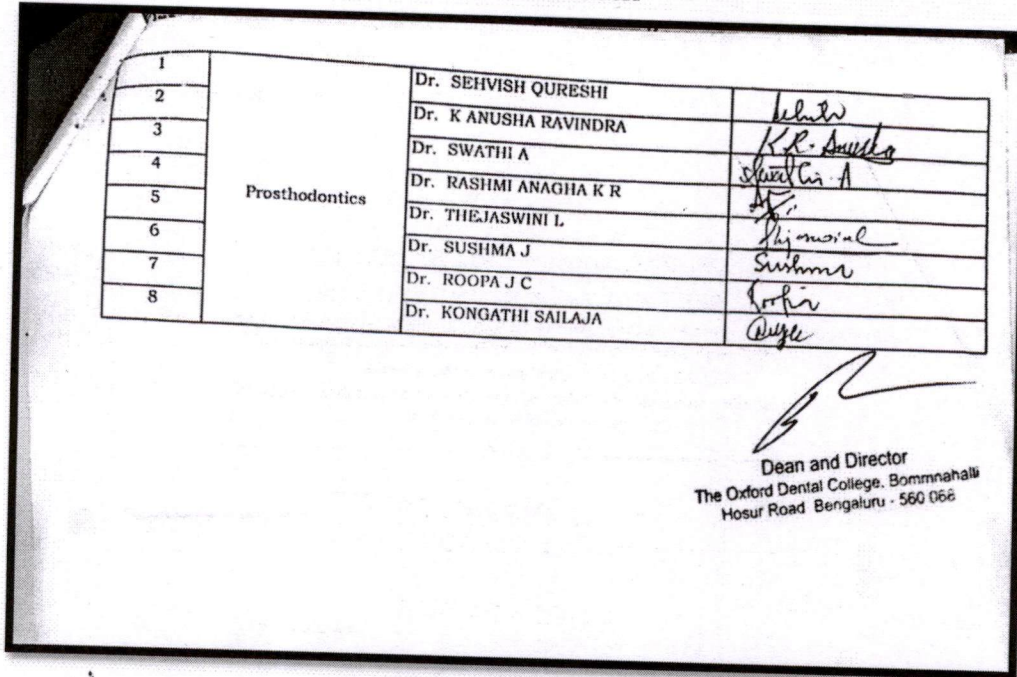 1 Dr. SEHVISH QURESHI
2 Dr. K ANUSHA RAVINDRA K.R. Anusha
3 Dr. SWATHI A Swathi A
4 Dr. RASHMI ANAGHA K R
5 Prosthodontics Dr. THEJASWINI L
6 Dr. SUSHMA J Sushma
7 Dr. ROOPA J C Roopa
8 Dr. KONGATHI SAILAJA
Dean and Director
The Oxford Dental College, Bommnahalli
Hosur Road Bengaluru - 560 068